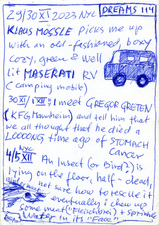 DREAMS 114
29/30 XI 2023 NYC
KLAUS MOSSLE picks me up
with an old-fashioned, boxy
cozy, green & well
lit MASERATI RV
(camping mobile)
30/XI 1/XII: I meet GREGOR GRETEN
(KFG Mannheim) and tell him that
we all thought that he died a
LOOONG time ago of STOMACH
CANCER
NYC
4/5 XII An Insect (or Bird?) is
lying on the floor, half-dead,
am not sure how to rescue it
eventually i chew up
some meat (Fleischbrei) + sprinkle
Water in its "Face"